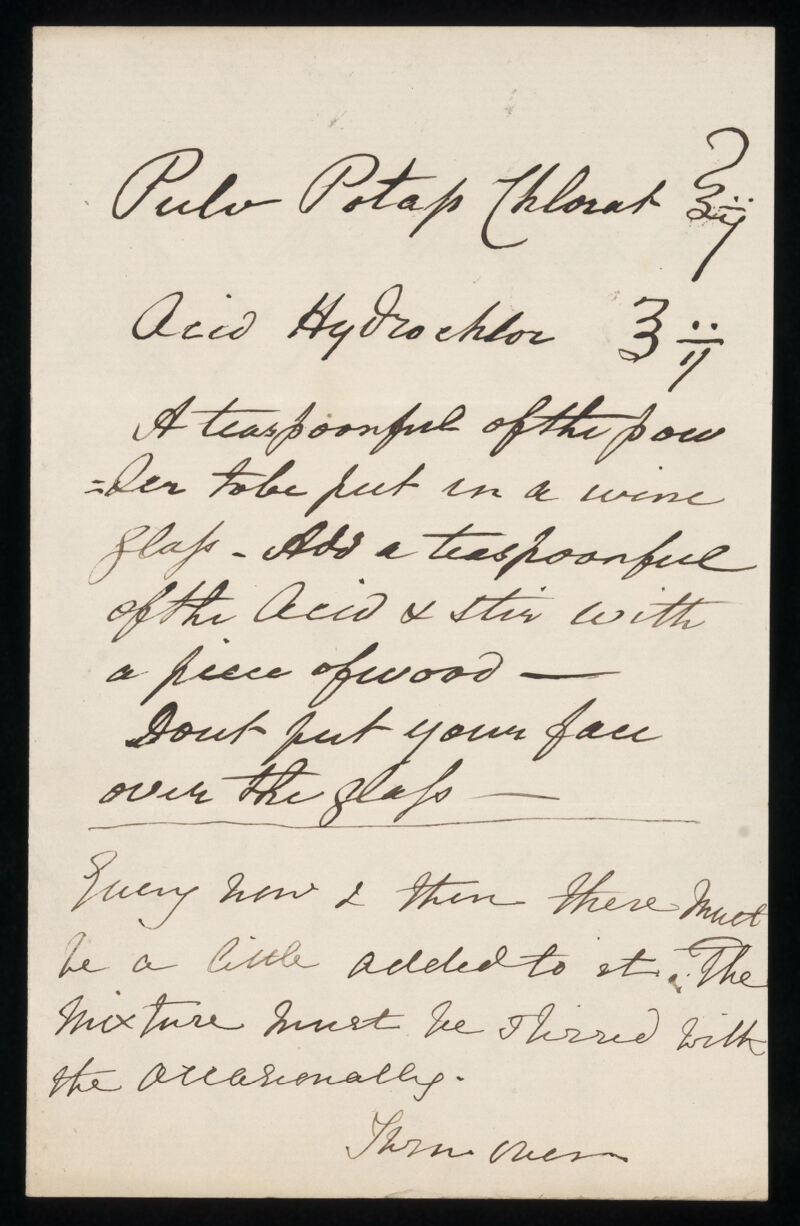 Pulv Potass Chlorat ℥ij
Acid Hydrochlor ℥ij
A teaspoonful of the pow
=der to be put in a wine
glass - Add a teaspoonful
of the Acid & stir with
a piece of wood —
Dont put your face
over the glass —
Every now & then there must
be a little added to it. The
mixture must be stirred with
the occasionally.
Turn over